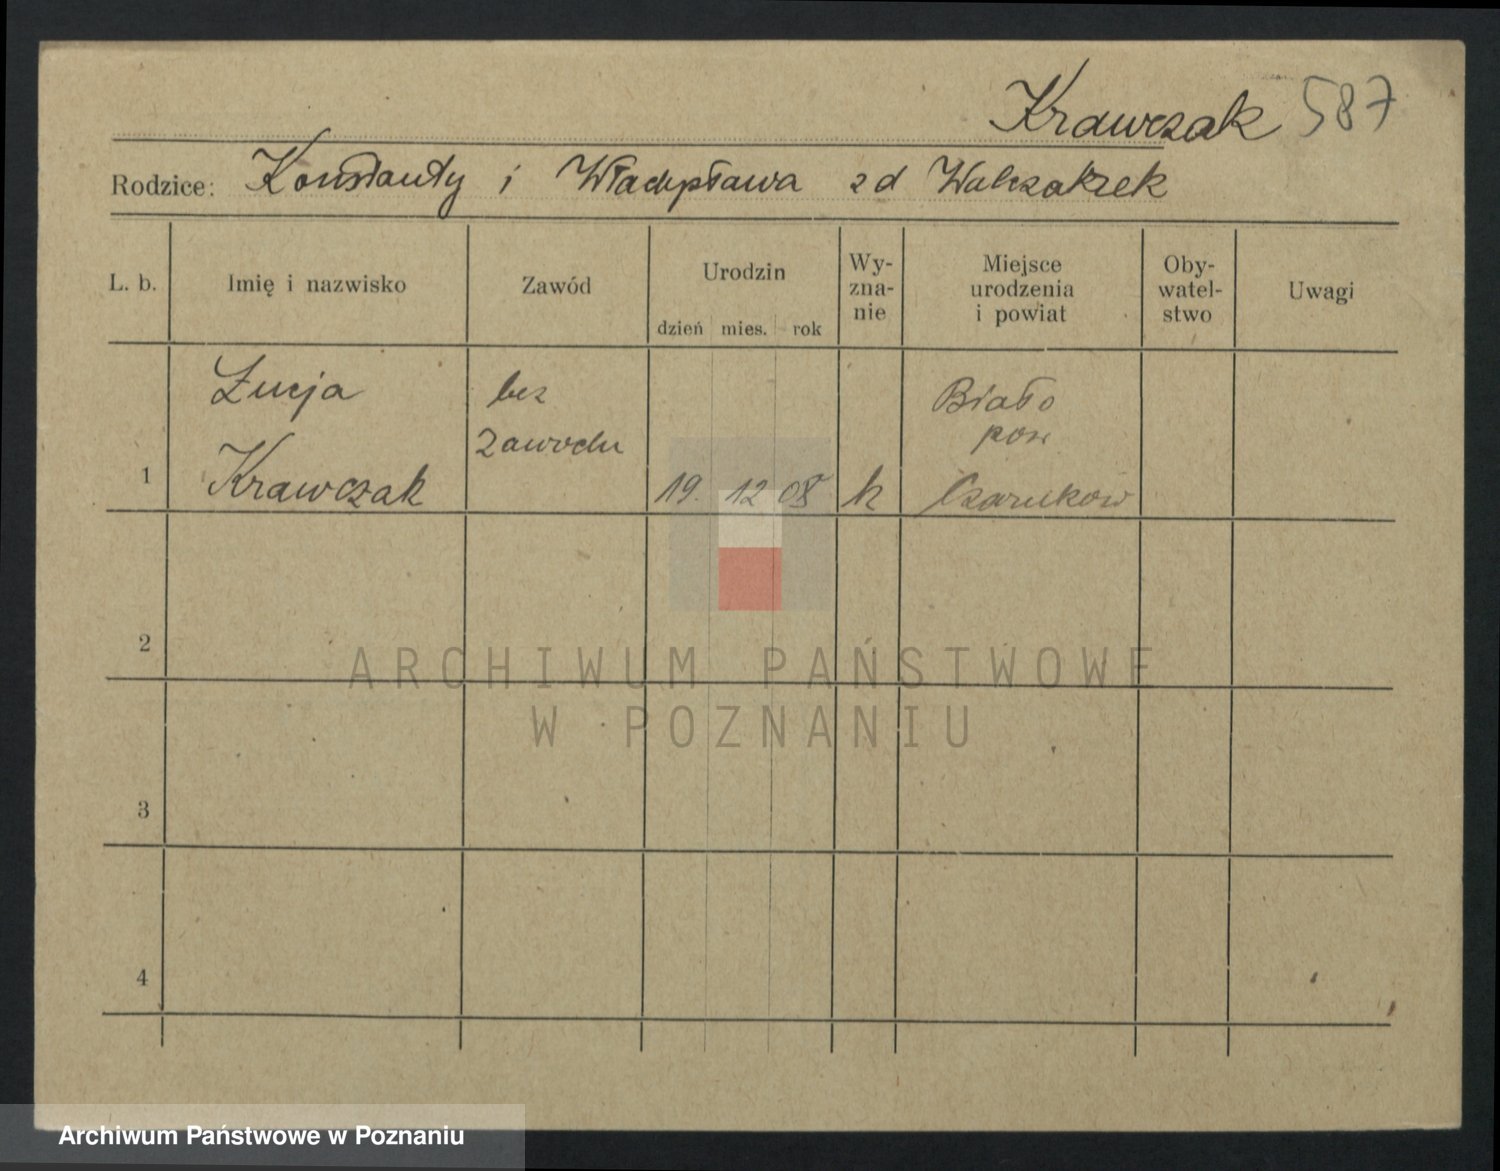 Krawczak 587
Rodzice: Konstanty i Władysława zd Walczakzek
L. b.
Imię i nazwisko
Zawód
Urodzin
dzień mies. rok
Wy-
zna-
nie
Miejsce
urodzenia
i powiat
Oby-
watel-
stwo
Uwagi
1
Łucja
Krawczak
bez
zawodu
19. 12 08
k
Biało
pow
Czarnków
2
3
4
ARCHIWUM PAŃSTWOWE
W POZNANIU
Archiwum Państwowe w Poznaniu